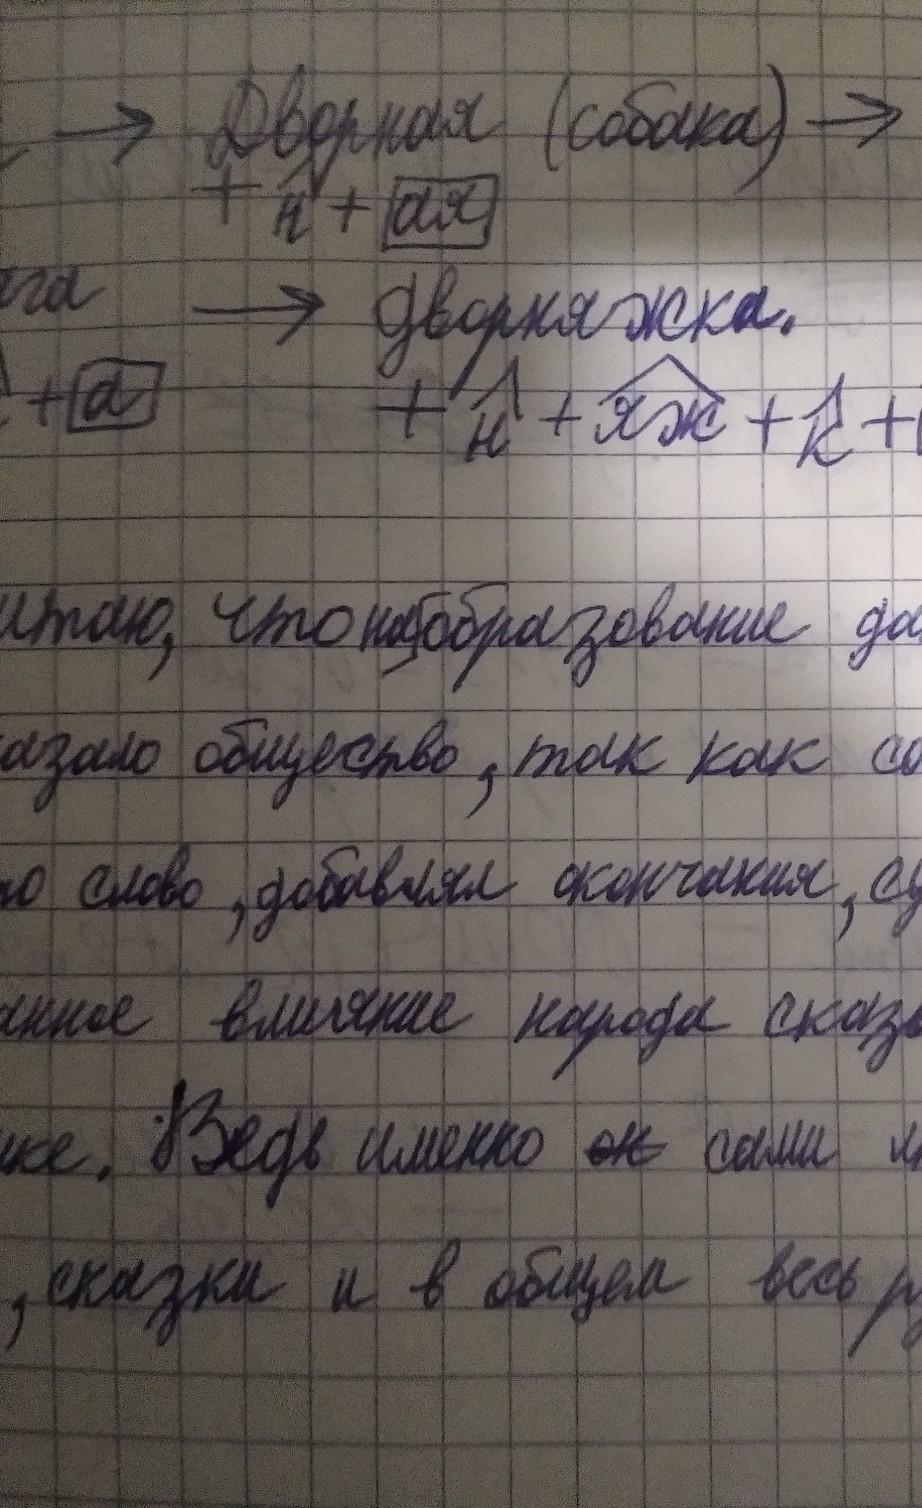 → Дворная (собака) →
+ н + ая
яга → дворняжка.
+ а + н + яж + к +
итаю, что на образование да
азало общество, так как со
то слово, добавлял окончания, су
анное влияние народа сказы
ике. Ведь именно сами лю
, сказки и в общем весь ру